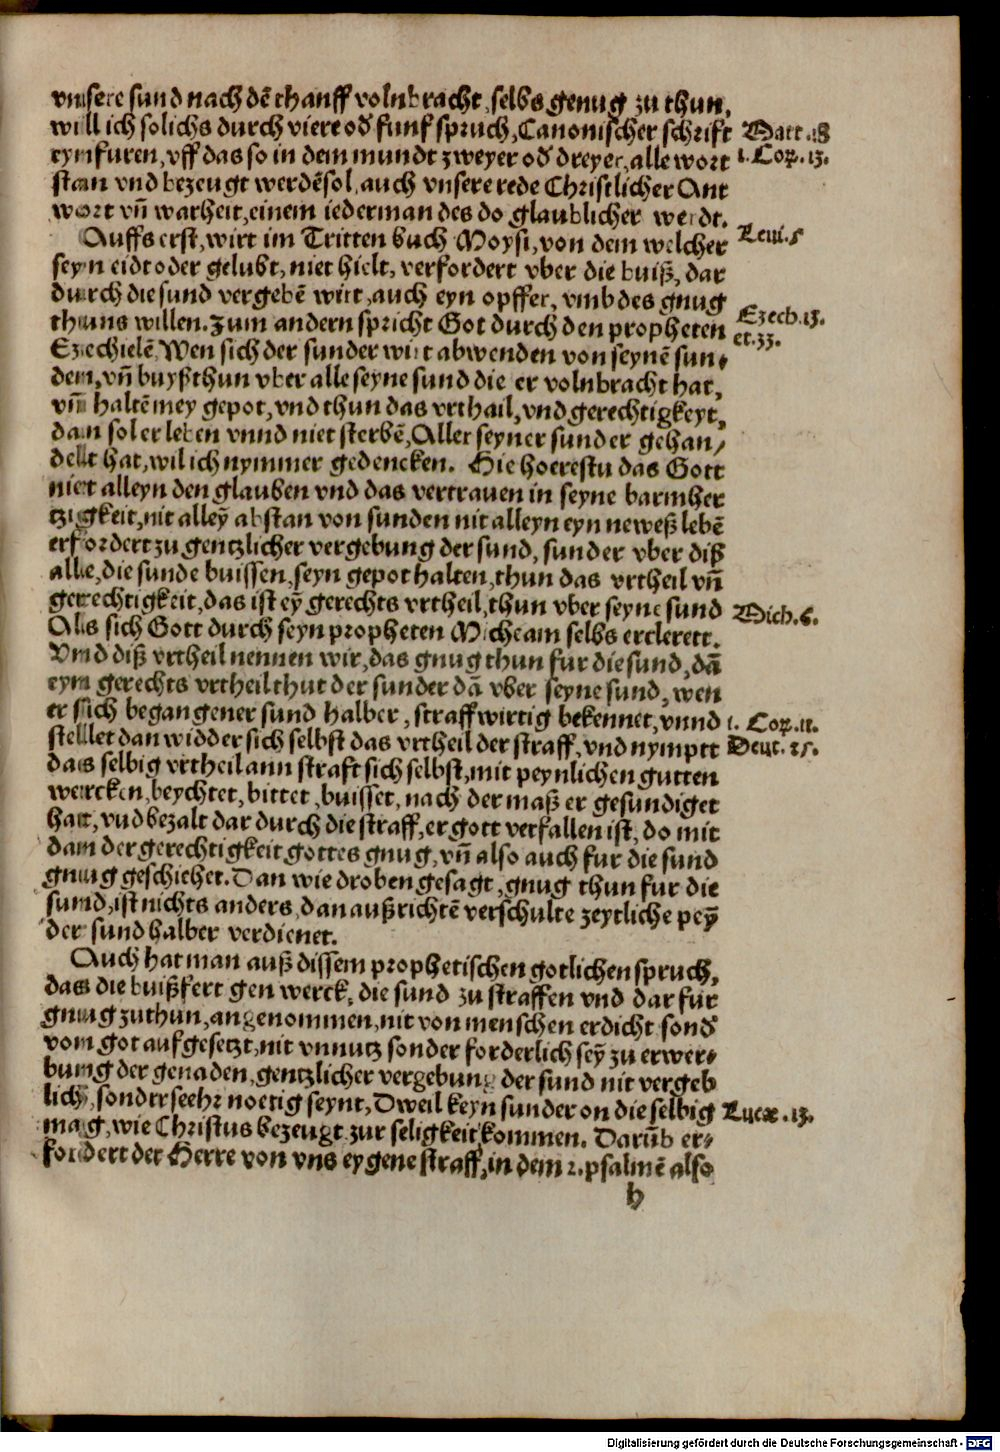 vnsere sund nach dē thauff volnbracht, selbs genug zu thun,
will ich solichs durch viere od̄ funf spruch, Canonischer schrift
eynfuren, vff das so in dem mundt zweyer od̄ dreyer, alle wort
stan vnd bezeugt werdē sol, auch vnsere rede Christlicher Ant
wort vn̄ warheit, einem iederman des do glaublicher werdt.
Matt. 18
1. Cor. 13.
Auffs erst, wirt im Tritten buch Moysi, von dem welcher
seyn eidt oder gelubt, niet hielt, verfordert vber die buiß, dar
durch die sund vergebē wirt, auch eyn opffer, vmb des gnug
thuns willen. Zum andern spricht Got durch den propheten
Ezechielē, Wen sich der sunder wirt abwenden von seynē sun-
den, vn̄ buyß thun vber alle seyne sund die er volnbracht hat,
vn̄ haltē mey gepot, vnd thun das vrthail, vnd gerechtigkeyt,
dan sol er leben vnnd niet sterbē, Aller seyner sund er gehan/
delt hat, wil ich nymmer gedencken. Hie hoerestu das Gott
niet alleyn den glauben vnd das vertrauen in seyne barmher
tzigkeit, nit alleȳ abstan von sunden nit alleyn eyn neweß lebē
erfordert zu gentzlicher vergebung der sund, sunder vber diß
alle, die sunde buissen, seyn gepot halten, thun das vrtheil vn̄
gerechtigkeit, das ist eȳ gerechts vrtheil, thun vber seyne sund
Als sich Gott durch seyn propheten Micheam selbs erclerett.
Vnd diß vrtheil nennen wir, das gnug thun fur die sund, dā
eyn gerechts vrtheil thut der sunder dā vber seyne sund, wen
er sich begangener sund halber, straffwirtig bekennet, vnnd
stellet dan widder sich selbst das vrtheil der straff, vnd nymptt
das selbig vrtheil ann straft sich selbst, mit peynlichen gutten
wercken, beychtet, bittet, buisset, nach der maß er gesundiget
hatt, vnd bezalt dar durch die straff, er gott verfallen ist, do mit
dan der gerechtigkeit gottes gnug, vn̄ also auch fur die sund
gnug geschiehet. Dan wie droben gesagt, gnug thun fur die
sund, ist nichts anders, dan außrichtē verschulte zeytliche peȳ
der sund halber verdienet.
Leui. 5
Ezech. 13.
et. 33.
Mich. 6.
1. Cor. 11.
Deut. 25.
Auch hat man auß dissem prophetischen gotlichen spruch,
das die buißfert gen werck, die sund zu straffen vnd dar fur
gnug zuthun, angenommen, nit von menschen erdicht sond̄
von got aufgesetzt, nit vnnutz sonder forderlich seȳ zu erwer-
bung der genaden, gentzlicher vergebung der sund nit vergeb
lich, sonder seehr noetig seynt, Dweil keyn sunder on die selbig
mag, wie Christus bezeugt zur seligkeit kommen. Darūb er-
fordert der Herre von vns eygene straff, in dem 2. psalmē also
Luce. 13.
h
Digitalisierung gefördert durch die Deutsche Forschungsgemeinschaft - DFG